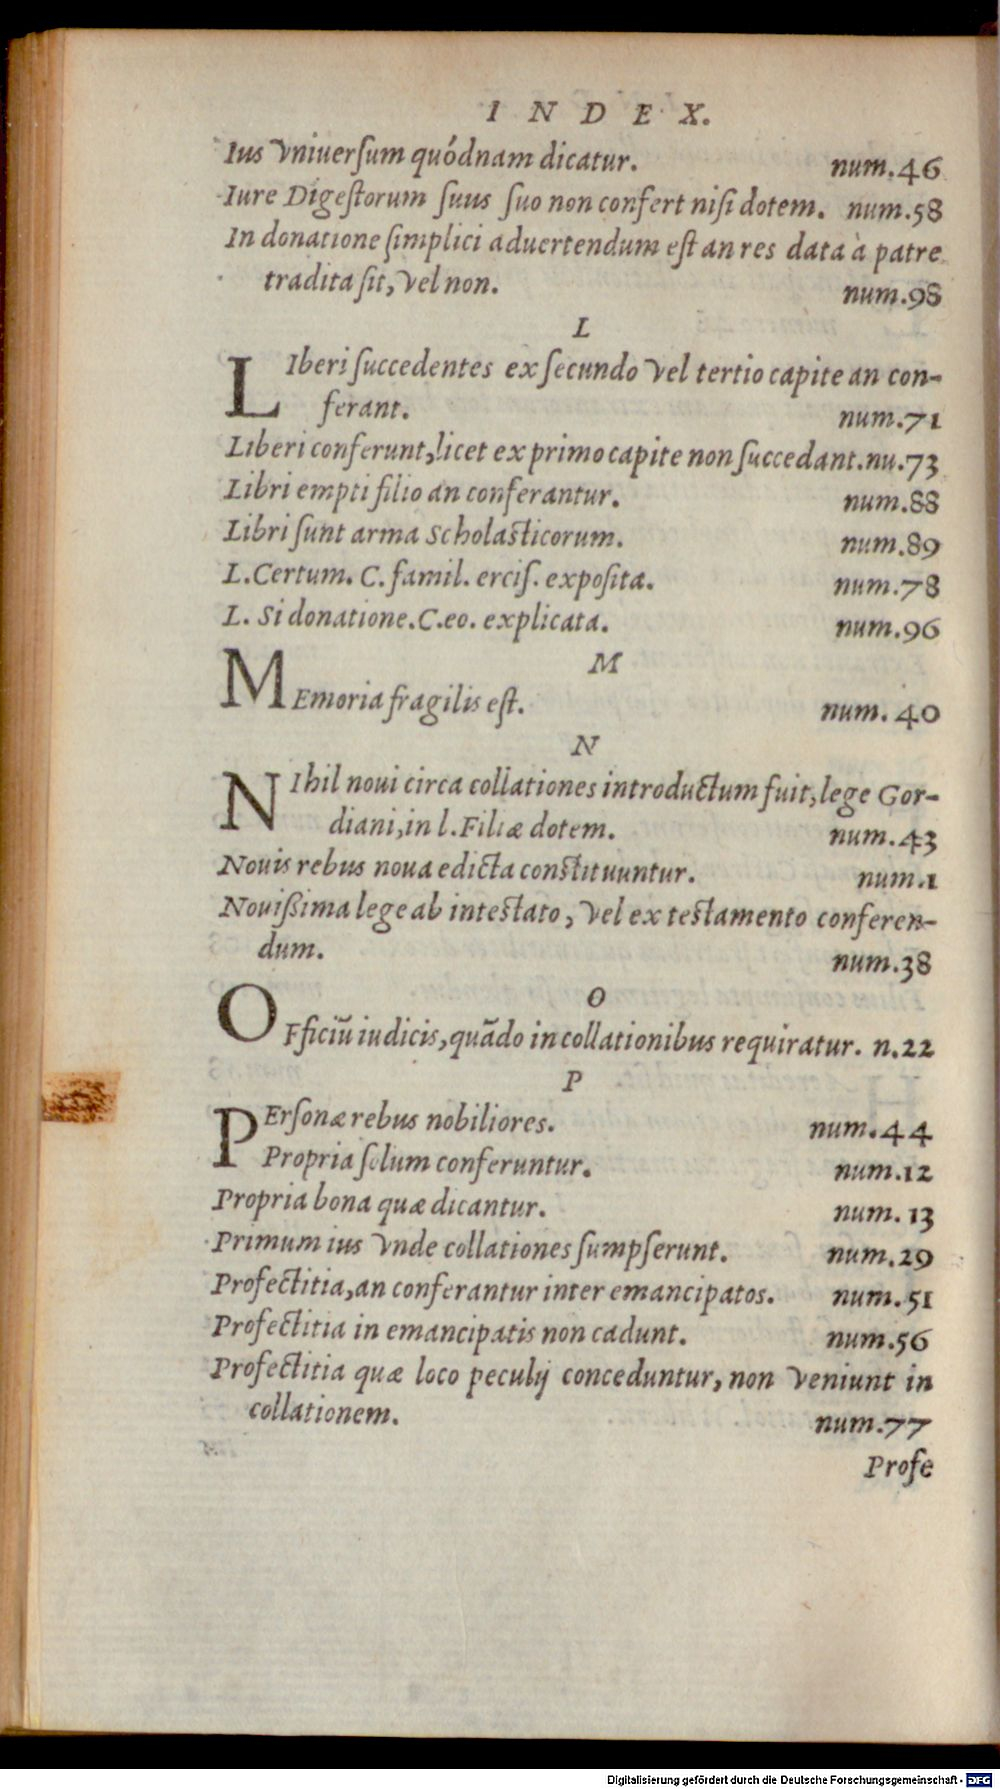 INDEX.
Ius vniuersum quódnam dicatur. num.46
Iure Digestorum suus suo non confert nisi dotem. num.58
In donatione simplici aduertendum est an res data à patre
tradita sit, vel non. num.98
L
LIberi succedentes ex secundo vel tertio capite an con-
ferant. num.71
Liberi conferunt, licet ex primo capite non succedant. nu.73
Libri empti filio an conferantur. num.88
Libri sunt arma Scholasticorum. num.89
L. Certum. C. famil. ercis. exposita. num.78
L. Si donatione. C. eo. explicata. num.96
M
MEmoria fragilis est. num. 40
N
NIhil noui circa collationes introductum fuit, lege Gor-
diani, in l. Filiæ dotem. num.43
Nouis rebus noua edicta constituuntur. num.1
Nouißima lege ab intestato, vel ex testamento conferen-
dum. num.38
O
OFficiũ iudicis, quãdo in collationibus requiratur. n.22
P
PErsonæ rebus nobiliores. num.44
Propria solum conferuntur. num.12
Propria bona quæ dicantur. num. 13
Primum ius vnde collationes sumpserunt. num.29
Profectitia, an conferantur inter emancipatos. num. 51
Profectitia in emancipatis non cadunt. num.56
Profectitia quæ loco peculij conceduntur, non veniunt in
collationem. num.77
Profe
Digitalisierung gefördert durch die Deutsche Forschungsgemeinschaft - DFG